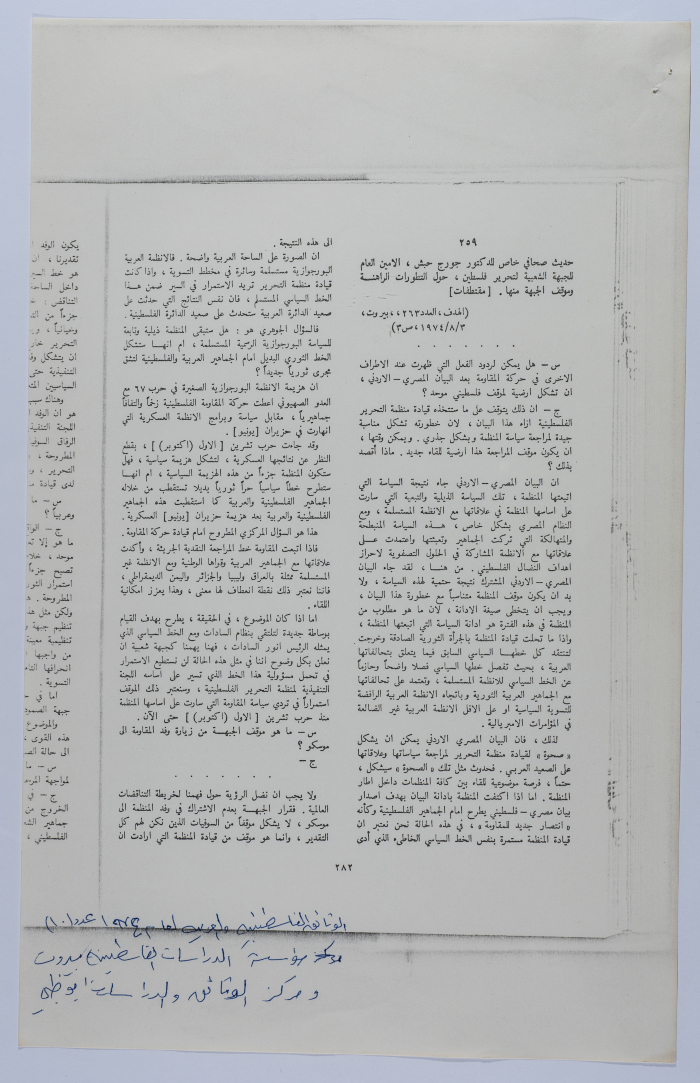 ٢٥٩
حديث صحافي خاص للدكتور جورج حبش ، الامين العام
للجبهة الشعبية لتحرير فلسطين ، حول التطورات الراهنــة
وموقف الجبهة منها . [ مقتطفات ]
(الهدف ، العدد ٢٦٣ ، بيروت ،
٣/٨/١٩٧٤ ، ص٣)
. . . . . . .
س – هل يمكن لردود الفعل التي ظهرت عند الاطراف
الاخرى في حركة المقاومة بعد البيان المصري – الاردني ،
ان تشكل ارضية لموقف فلسطيني موحد ؟
ج – ان ذلك يتوقف على ما ستتخذه قيادة منظمة التحرير
الفلسطينية ازاء هذا البيان ، لان خطورته تشكل مناسبة
جيدة لمراجعة سياسة المنظمة وبشكل جذري . ويمكن وقتها ،
ان يكون موقف المراجعة هذا ارضية للقاء جديد . ماذا أقصد
بذلك ؟
ان البيان المصري – الاردني جاء نتيجة السياسة التي
اتبعتها المنظمة ، تلك السياسة الذيلية والتبعية التي سارت
على اساسها المنظمة في علاقاتها مع الانظمة المستسلمة ، ومع
النظام المصري بشكل خاص ، هــذه السياسة المنبطحة
والمتهالكة التي تركت الجماهير وتعبئتها واعتمدت علــى
علاقاتها مع الانظمة المشاركة في الحلول التصفوية لاحراز
اهداف النضال الفلسطيني . من هنــا ، لقد جاء البيان
المصري – الاردني المشترك نتيجة حتمية لهذه السياسة ، ولا
بد ان يكون موقف المنظمة متناسباً مع خطورة هذا البيان ،
ويجب ان يتخطى صيغة الادانة ، لان ما هو مطلوب من
المنظمة في هذه الفترة هو ادانة السياسة التي اتبعتها المنظمة ،
واذا ما تحلت قيادة المنظمة بالجرأة الثورية الصادقة وخرجت
لتنتقد كل خطهــا السياسي السابق فيما يتعلق بتحالفاتها
العربية ، بحيث تفصل خطها السياسي فصلا واضحاً وحازماً
عن الخط السياسي للانظمة المستسلمة ، وتعتمد على تحالفاتها
مع الجماهير العربية الثورية وباتجاه الانظمة العربية الرافضة
للتسوية السياسية او على الاقل الانظمة العربية غير الضالعة
في المؤامرات الامبريالية .
لذلك ، فان البيان المصري الاردني يمكن ان يشكل
« صحوة » لقيادة منظمة التحرير لمراجعة سياساتها وعلاقاتها
على الصعيد العربي . فحدوث مثل تلك « الصحوة » سيشكل ،
حتماً ، فرصة موضوعية للقاء بين كافة المنظمات داخل اطار
المنظمة . اما اذا اكتفت المنظمة بادانة البيان بهدف اصدار
بيان مصري – فلسطيني يطرح امام الجماهير الفلسطينية وكأنه
« انتصار جديد للمقاومة » ، في هذه الحالة نحن نعتبر ان
قيادة المنظمة مستمرة بنفس الخط السياسي الخاطىء الذي أدى
الى هذه النتيجة .
ان الصورة على الساحة العربية واضحة . فالانظمة العربية
البورجوازية مستسلمة وسائرة في مخطط التسوية ، واذا كانت
قيادة منظمة التحرير تريد الاستمرار في السير ضمن هــذا
الخط السياسي المستسلم ، فان نفس النتائج التي حدثت على
صعيد الدائرة العربية ستحدث على صعيد الدائرة الفلسطينية .
فالسؤال الجوهري هو : هل ستبقى المنظمة ذيلية وتابعة
للسياسة البورجوازية الرسمية المستسلمة ، ام انهــا ستشكل
الخط الثوري البديل امام الجماهير العربية والفلسطينية لتشق
مجرى ثورياً جديداً ؟
ان هزيمة الانظمة البورجوازية الصغيرة في حرب ٦٧ مع
العدو الصهيوني اعطت حركة المقاومة الفلسطينية زخماً والتفافاً
جماهيرياً ، مقابل سياسة وبرامج الانظمة العسكرية التي
انهارت في حزيران [يونيو] .
وقد جاءت حرب تشرين [ الاول (اكتوبر) ] ، بقطع
النظر عن نتائجها العسكرية ، لتشكل هزيمة سياسية ، فهل
ستكون المنظمة جزءاً من هذه الهزيمة السياسية ، ام انهــا
ستطرح خطاً سياسياً حراً ثورياً بديلا تستقطب من خلاله
الجماهير الفلسطينية والعربية كما استقطبت هذه الجماهير
الفلسطينية والعربية بعد هزيمة حزيران [يونيو] العسكرية .
هذا هو السؤال المركزي المطروح امام قيادة حركة المقاومة .
فاذا اتبعت المقاومة خط المراجعة النقدية الجريئة ، وأكدت
علاقاتها مع الجماهير العربية وقواها الوطنية ومع الانظمة غير
المستسلمة ممثلة بالعراق وليبيا والجزائر واليمن الديمقراطي ،
فاننا نعتبر ذلك نقطة انعطاف لها معنى ، وهذا يعزز امكانية
اللقاء .
اما اذا كان الموضوع ، في الحقيقة ، يطرح بهدف القيام
بوساطة جديدة لتلتقي بنظام السادات ومع الخط السياسي الذي
يمثله الرئيس أنور السادات ، فهنا يهمنا كجبهة شعبية ان
نعلن بكل وضوح اننا في مثل هذه الحالة لن نستطيع الاستمرار
في تحمل مسؤولية هذا الخط الذي تسير على اساسه اللجنة
التنفيذية لمنظمة التحرير الفلسطينية ، وسنعتبر ذلك الموقف
استمراراً في تردي سياسة المقاومة التي سارت على اساسها المنظمة
منذ حرب تشرين [ الاول (اكتوبر) ] حتى الآن .
س – ما هو موقف الجبهــة من زيارة وفد المقاومة الى
موسكو ؟
ج –
. . . . . . .
ولا يجب ان تضل الرؤية حول فهمنا لخريطة التناقضات
العالمية . فقرار الجبهــة بعدم الاشتراك في وفد المنظمة الى
موسكو ، لا يشكل موقفاً من السوفيات الذين نكن لهم كل
التقدير ، وانما هو موقف من قيادة المنظمة التي ارادت ان
يكون الوفد
تقديرنا ، ان
هو خط السير
داخل الساحة
التناقض :
جزءاً من
وخيانياً ،
التحرير خارج
ان يتشكل وفد
التنفيذية حتى
السياسيين
وهناك سبب
هو ان الوفد
اللجنة التنفيذية
الرفاق السوفيات
المطروحة ،
التحرير ،
لدى قيادة
س – ما
وعربياً ؟
ج –
ما هو إلا
موحد ،
تصبح جزءاً
استمرار
المطروحة .
ولكن مثل هذا
تنظيم جبهة
تنظيمية معينة
من واجبها
انحرافها
التسوية .
اما في
جبهة الصمود
والموضوع
هذه القوى ،
الى حالة
س – ما
لمواجهة
ج – في
الخروج من
جماهير
الفلسطيني ،
٢٨٢
الوثائق الفلسطينية والعربية لعام ١٩٧٤ عدد (١٠)
مؤسسة الدراسات الفلسطينية بيروت
و مركز الوثائق والدراسات ابوظبي